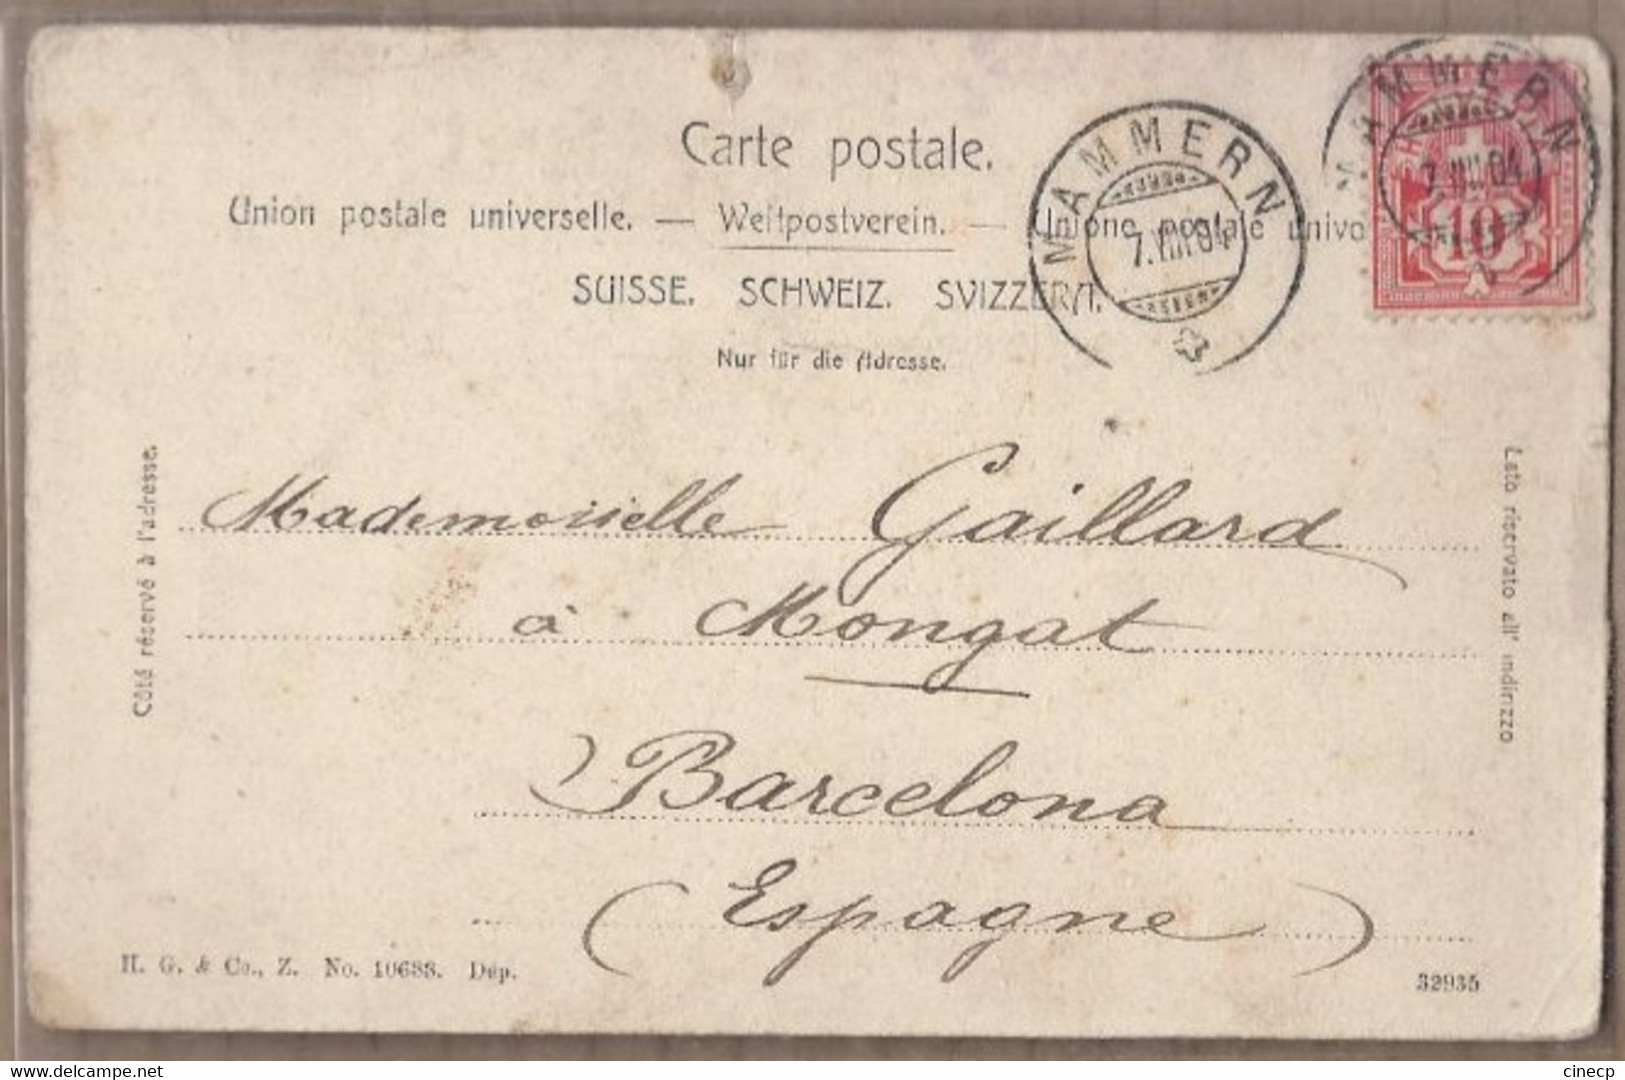 Carte postale.
Union postale universelle. — Weltpostverein. — Unione postale unive
SUISSE. SCHWEIZ. SVIZZERA.
Nur für die Adresse.
MAMMERN
7.VIII.04
MAMMERN
7.VIII.04
10
Côté réservé à l'adresse.
Lato riservato all' indirizzo
Mademoiselle Gaillard
à Mongat
Barcelona
(Espagne)
H. G. & Co., Z. No. 10683. Dép.
32935
cinecp